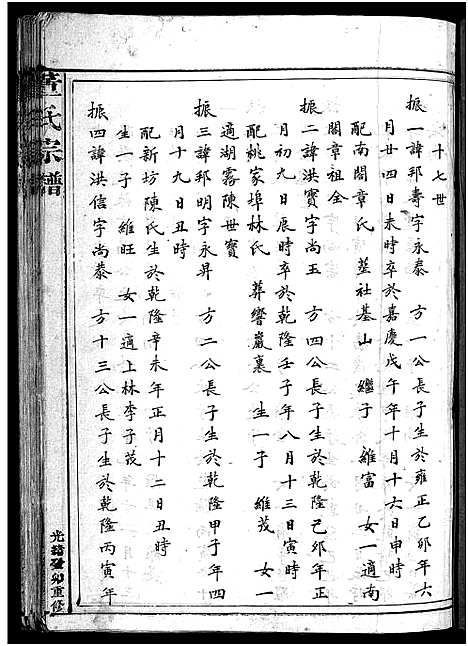 十七世
振一諱邦壽字永泰 方一公長子生於雍正乙卯年六
月廿四日未時卒於嘉慶戊午年十月十六日申時
配南閣章氏 塟社基山 繼子 維富 女一適南
閣章祖全
振二諱洪寶字尚玉 方四公長子生於乾隆己卯年正
月初九日辰時卒於乾隆壬子年八月十三日寅時
配姚家埠林氏 葬響巖裏 生一子 維茂 女一
適湖霧陳世寶
振三諱邦明字永昇 方二公長子生於乾隆甲子年四
月十九日丑時
配新坊陳氏生於乾隆辛未年正月十二日丑時
生一子 維旺 女一適上林李子茂
振四諱洪信字尚泰 方十三公長子生於乾隆丙寅年
董氏宗譜
光緒卯重修